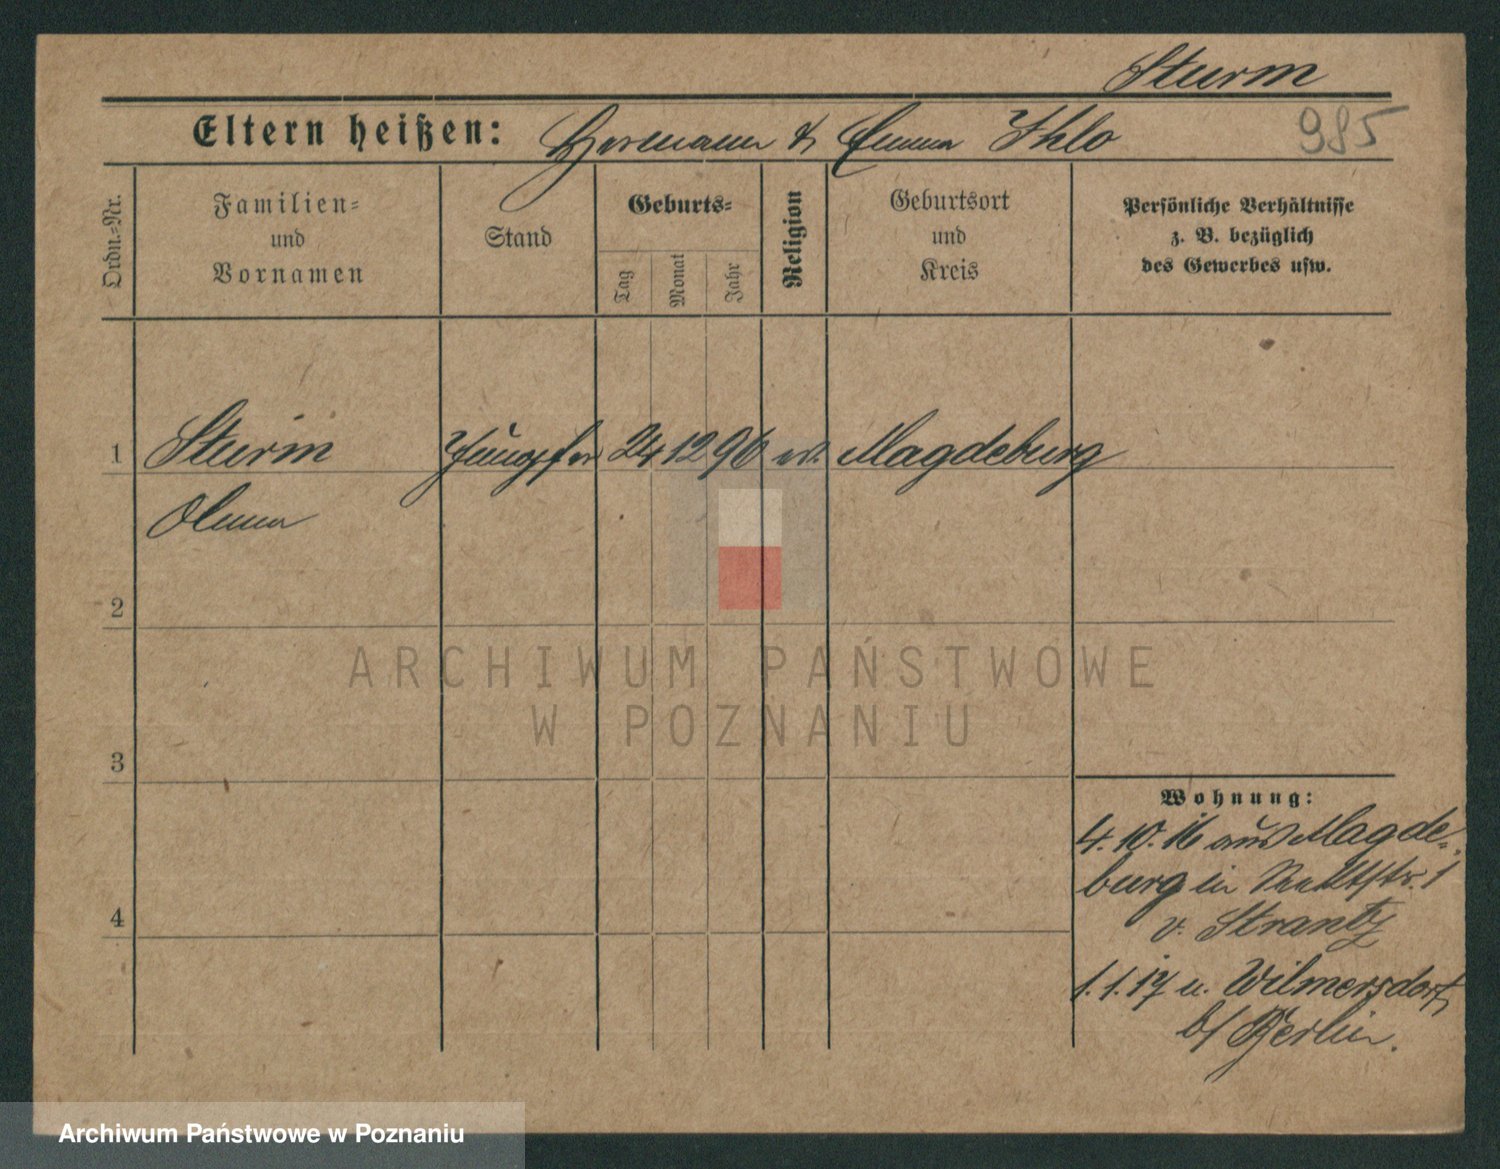 Sturm
Eltern heißen: Hermann & Emma Ihlo
985
Ordn.-Nr.
Familien-
und
Vornamen
Stand
Geburts-
Tag
Monat
Jahr
Religion
Geburtsort
und
Kreis
Persönliche Verhältnisse
z. B. bezüglich
des Gewerbes usw.
1 Sturm Jungfer 24 12 96 ev. Magdeburg
2
3
4
ARCHIWUM PAŃSTWOWE
W POZNANIU
Wohnung:
4. 10. 16 aus Magde-
burg in 1
v. Strantz
1. 1. 17 n. Wilmersdorf
b/ Berlin.
Archiwum Państwowe w Poznaniu